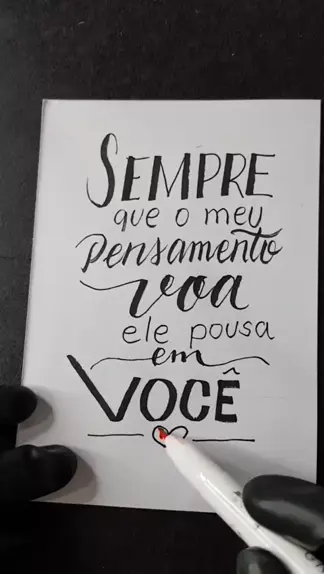 SEMPRE
que o meu
pensamento
voa
ele pousa
em
VOCÊ